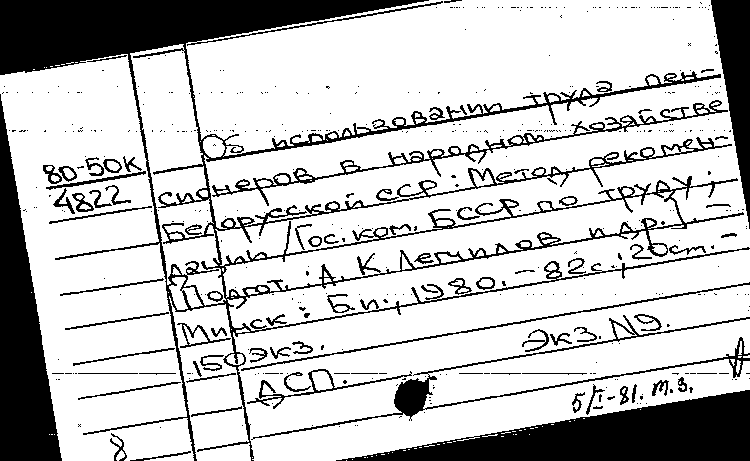 Об использовании труда пен-
80-50К
4822
сионеров в народном хозяйстве
Белорусской ССР: Метод. рекомен-
дации / Гос. ком. БССР по труду;
[Подгот.: А. К. Лемилов и др.]. –
Минск: Б.и., 1980. – 82с.; 20см. –
150экз.
Экз. №9.
ДСП.
5/I-81. т.з.
8